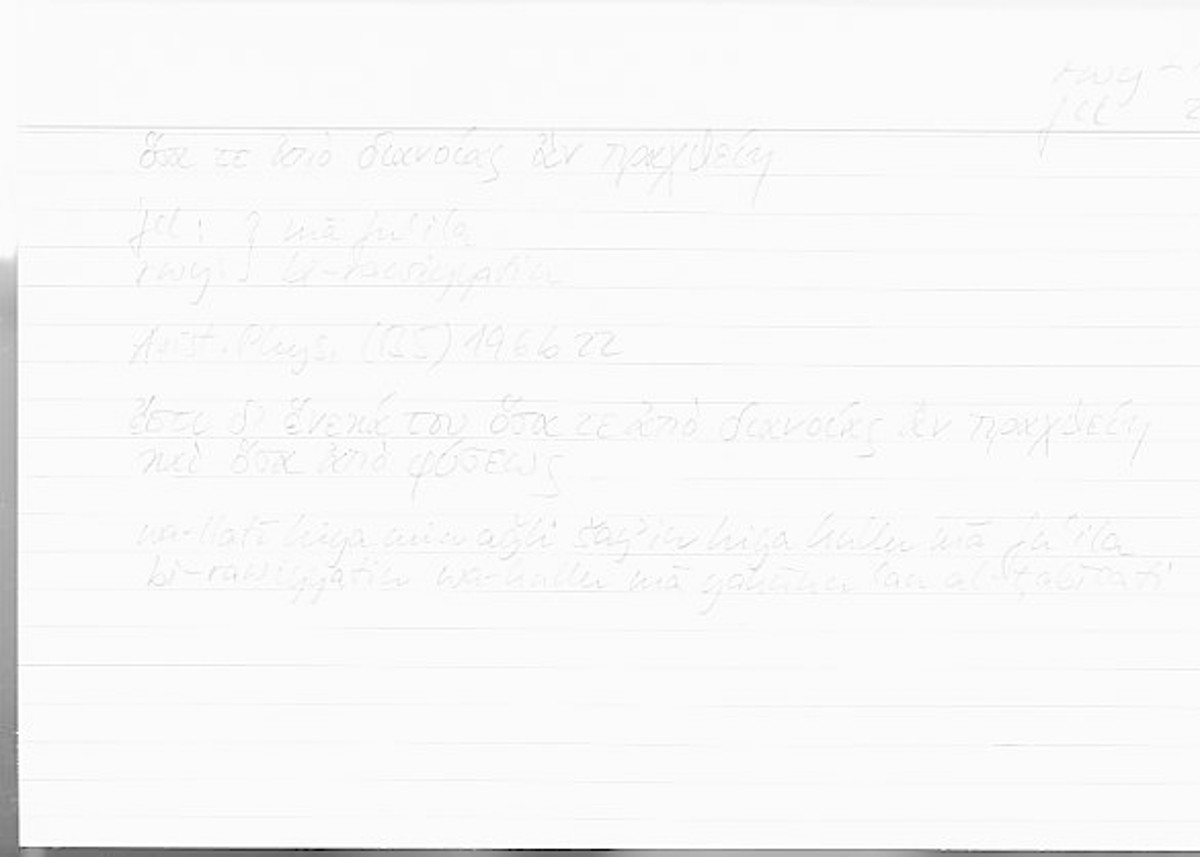 rwy
fʿl 2
ὅσα τε ἀπὸ διανοίας ἂν πραχθείη
fʿl : } mā fuʿila
rwy : } bi-rawiyyatin
Arist. Phys. II 5, 196b22
ἔστι δ' ἕνεκά του ὅσα τε ἀπὸ διανοίας ἂν πραχθείη
καὶ ὅσα ἀπὸ φύσεως
wa-llatī hiya min aǧli šayʾin hiya kullu mā fuʿila
bi-rawiyyatin wa-kullu mā yakūnu ʿan al-ṭabīʿati